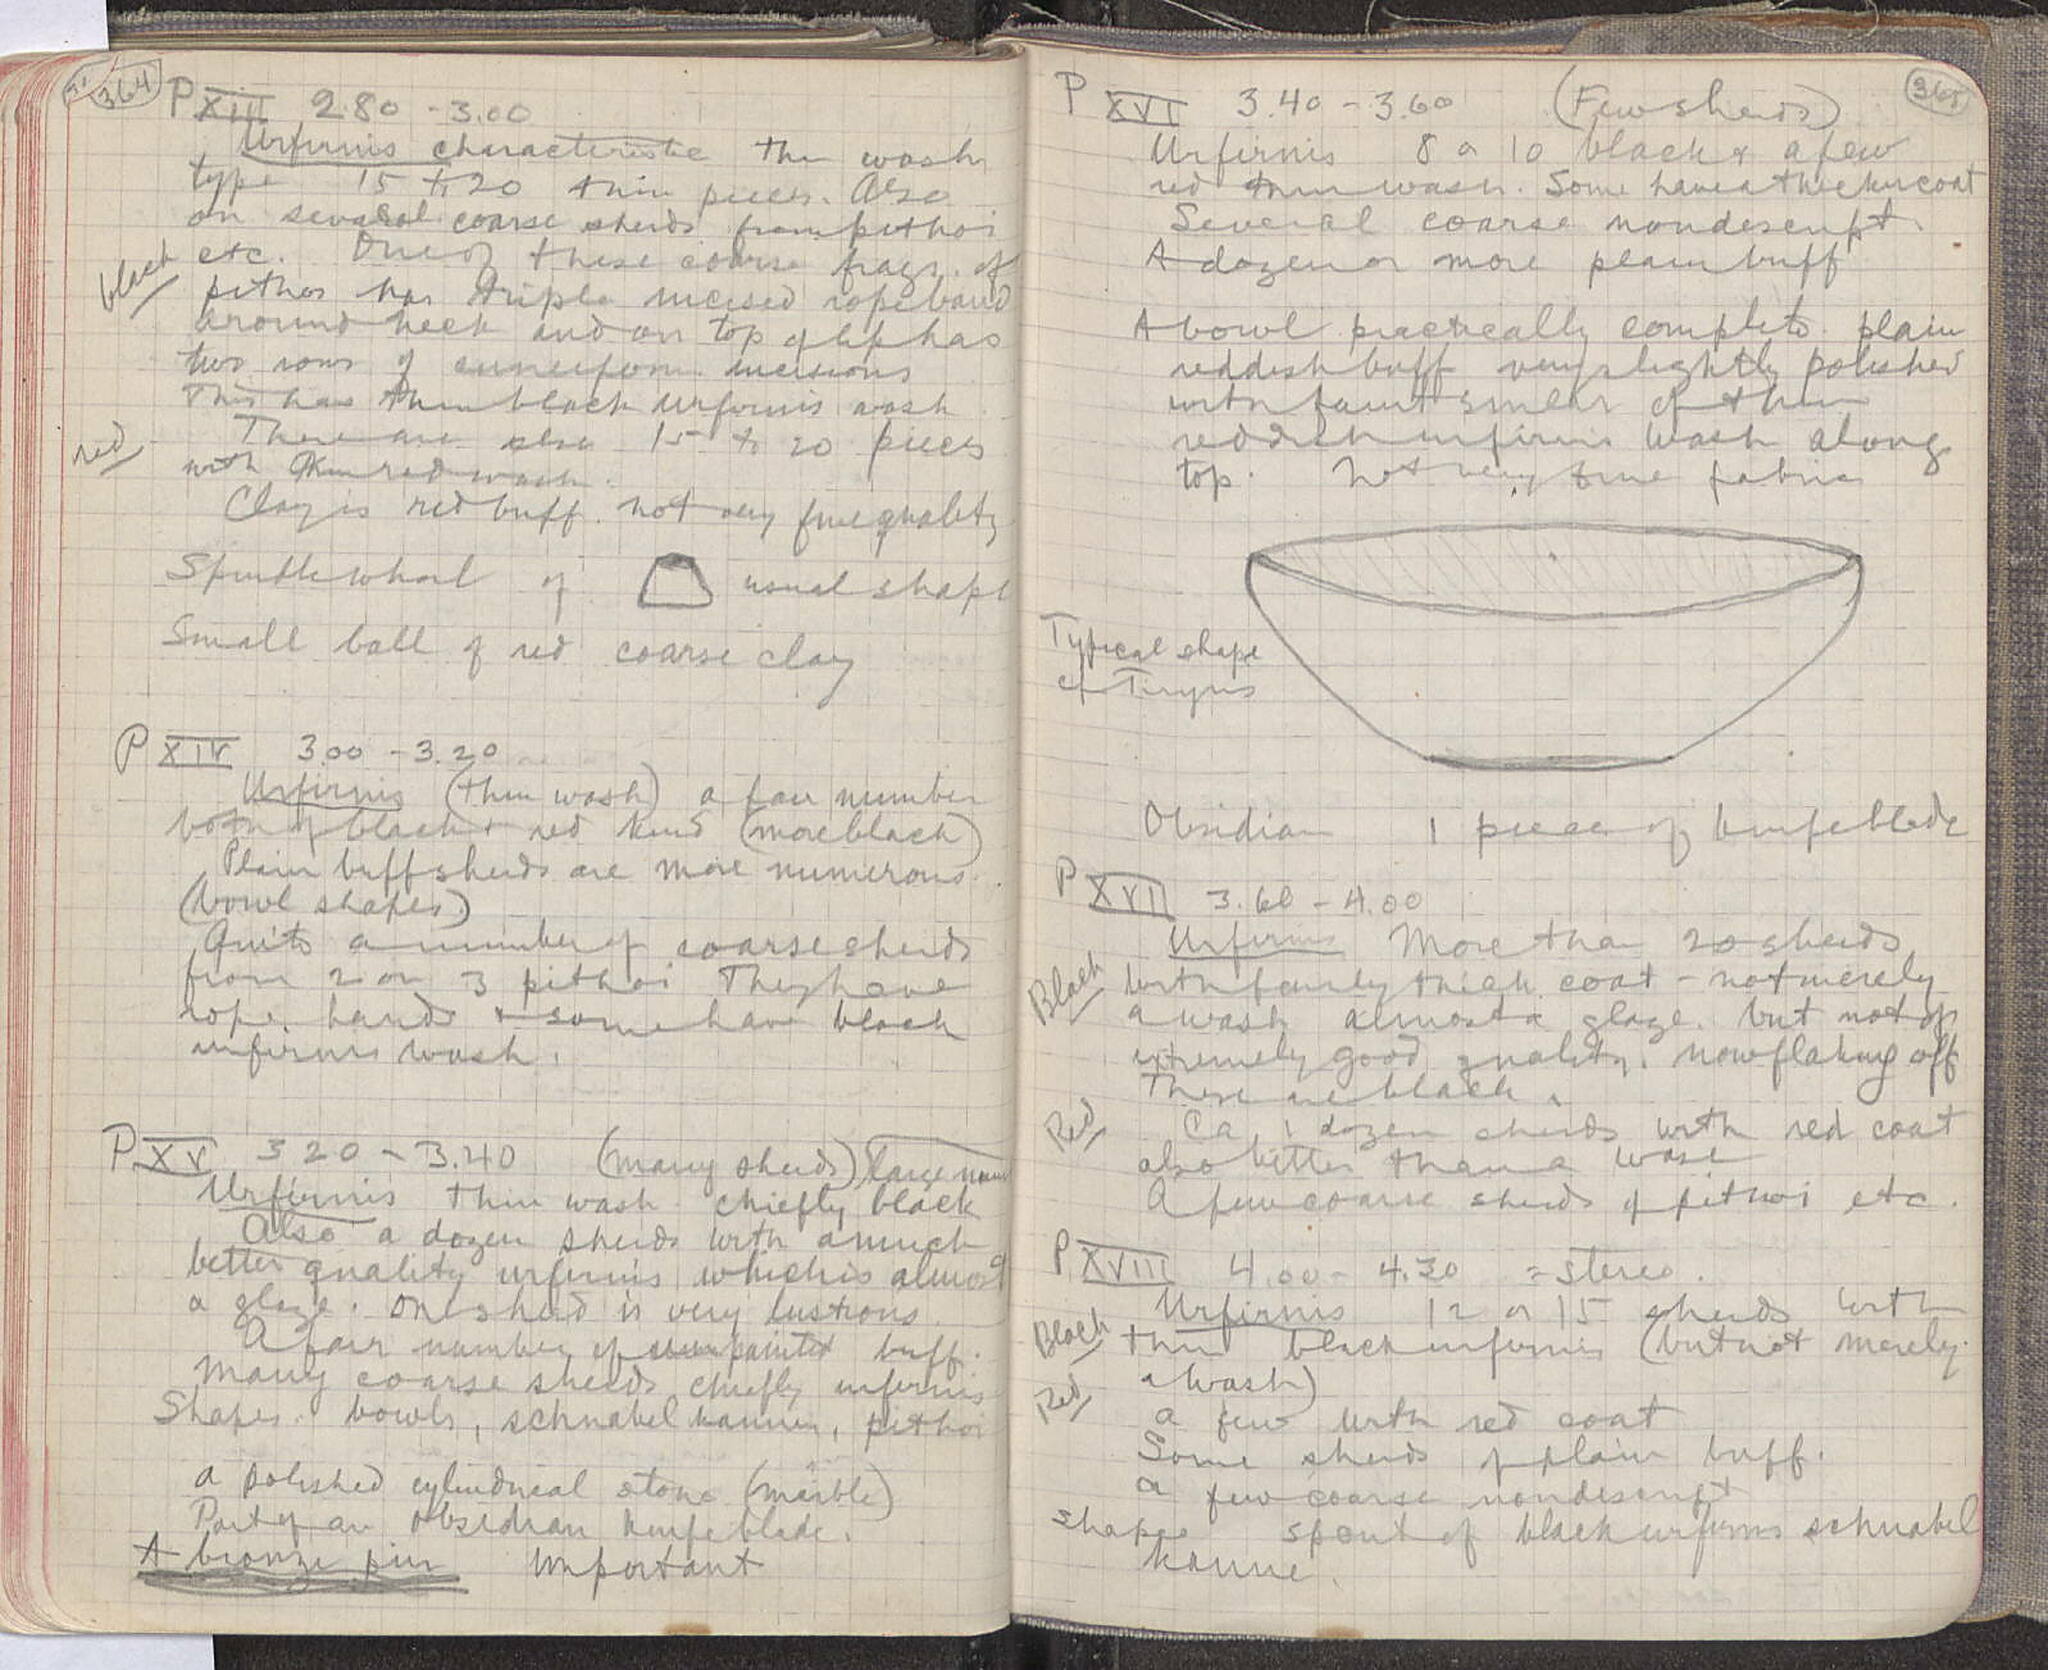 364
P XIII 2.80 - 3.00
Urfirnis characteristic thin wash
type 15 to 20 thin pieces. Also
on several coarse sherds from pithoi
black
etc. One of these coarse frags. of
pithos has triple incised rope band
around neck and on top of lip has
two rows of cuneiform incisions
This has thin black urfirnis wash
red
There are also 15 to 20 pieces
with thin red wash.
Clay is red buff. not very fine quality
Spindle whorl of usual shape
Small ball of red coarse clay
P XIV 3.00 - 3.20
Urfirnis (thin wash) a fair number
both of black + red kind (more black)
Plain buff sherds are more numerous.
(bowl shapes)
Quite a number of coarse sherds
from 2 or 3 pithoi They have
rope bands + some have black
urfirnis wash.
P XV 3 20 - 3.40 (many sherds) large
Urfirnis thin wash chiefly black
Also a dozen sherds with a much
better quality urfirnis which is almost
a glaze. One sherd is very lustrous.
A fair number of unpainted buff.
Many coarse sherds chiefly urfirnis
Shapes. bowls, schnabelkannen, pithoi
a polished cylindrical stone (marble)
Part of an obsidian knife blade.
A bronze pin important
365
P XVI 3.40 - 3.60 (Few sherds)
Urfirnis 8 or 10 black & a few
red thin wash. Some have a thicker coat
Several coarse nondescript.
A dozen or more plain buff
A bowl practically complete. plain
reddish buff very slightly polished
with faint smear of thin
reddish urfirnis wash along
top. Not very fine fabric
Typical shape
cf Tiryns
Obsidian 1 piece of knife blade
P XVII 3.60 - 4.00
Urfirnis More than 20 sherds
Black
with fairly thick coat - not merely
a wash almost a glaze. but not of
extremely good quality. now flaking off
These are black.
Red
Ca 1 dozen sherds with red coat
also better than a wash
A few coarse sherds of pithoi etc.
P XVIII 4.00 - 4.30 = stereo.
Urfirnis 12 or 15 sherds with
Black
thin black urfirnis (but not merely
a wash)
Red
a few with red coat
Some sherds of plain buff.
a few coarse nondescript
shapes spout of black urfirnis schnabel
kanne.